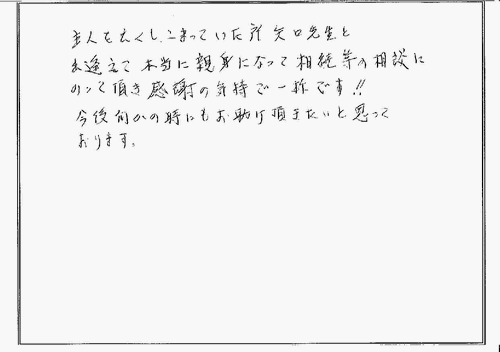 主人を亡くし、こまっていた所 矢口先生と
出逢えて本当に親身になって相続等の相談に
のって頂き感謝の気持で一杯です!!
今後何かの時にもお助け頂きたいと思って
おります。